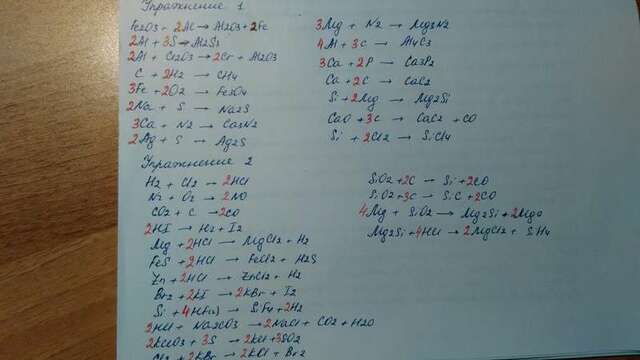 Упражнение 1
Fe2O3 + 2Al → Al2O3 + 2Fe
2Al + 3S → Al2S3
2Al + Cr2O3 → 2Cr + Al2O3
C + 2H2 → CH4
3Fe + 2O2 → Fe3O4
2Na + S → Na2S
3Ca + N2 → Ca3N2
2Ag + S → Ag2S
3Mg + N2 → Mg3N2
4Al + 3C → Al4C3
3Ca + 2P → Ca3P2
Ca + 2C → CaC2
Si + 2Mg → Mg2Si
CaO + 3C → CaC2 + CO
Si + 2Cl2 → SiCl4
Упражнение 2
H2 + Cl2 → 2HCl
N2 + O2 → 2NO
CO2 + C → 2CO
2HI → H2 + I2
Mg + 2HCl → MgCl2 + H2
FeS + 2HCl → FeCl2 + H2S
Zn + 2HCl → ZnCl2 + H2
Br2 + 2KI → 2KBr + I2
Si + 4HF(г) → SiF4 + 2H2
2HCl + Na2CO3 → 2NaCl + CO2 + H2O
2KClO3 + 3S → 2KCl + 3SO2
Cl2 + 2KBr → 2KCl + Br2
SiO2 + 2C → Si + 2CO
SiO2 + 3C → SiC + 2CO
4Mg + SiO2 → Mg2Si + 2MgO
Mg2Si + 4HCl → 2MgCl2 + SiH4